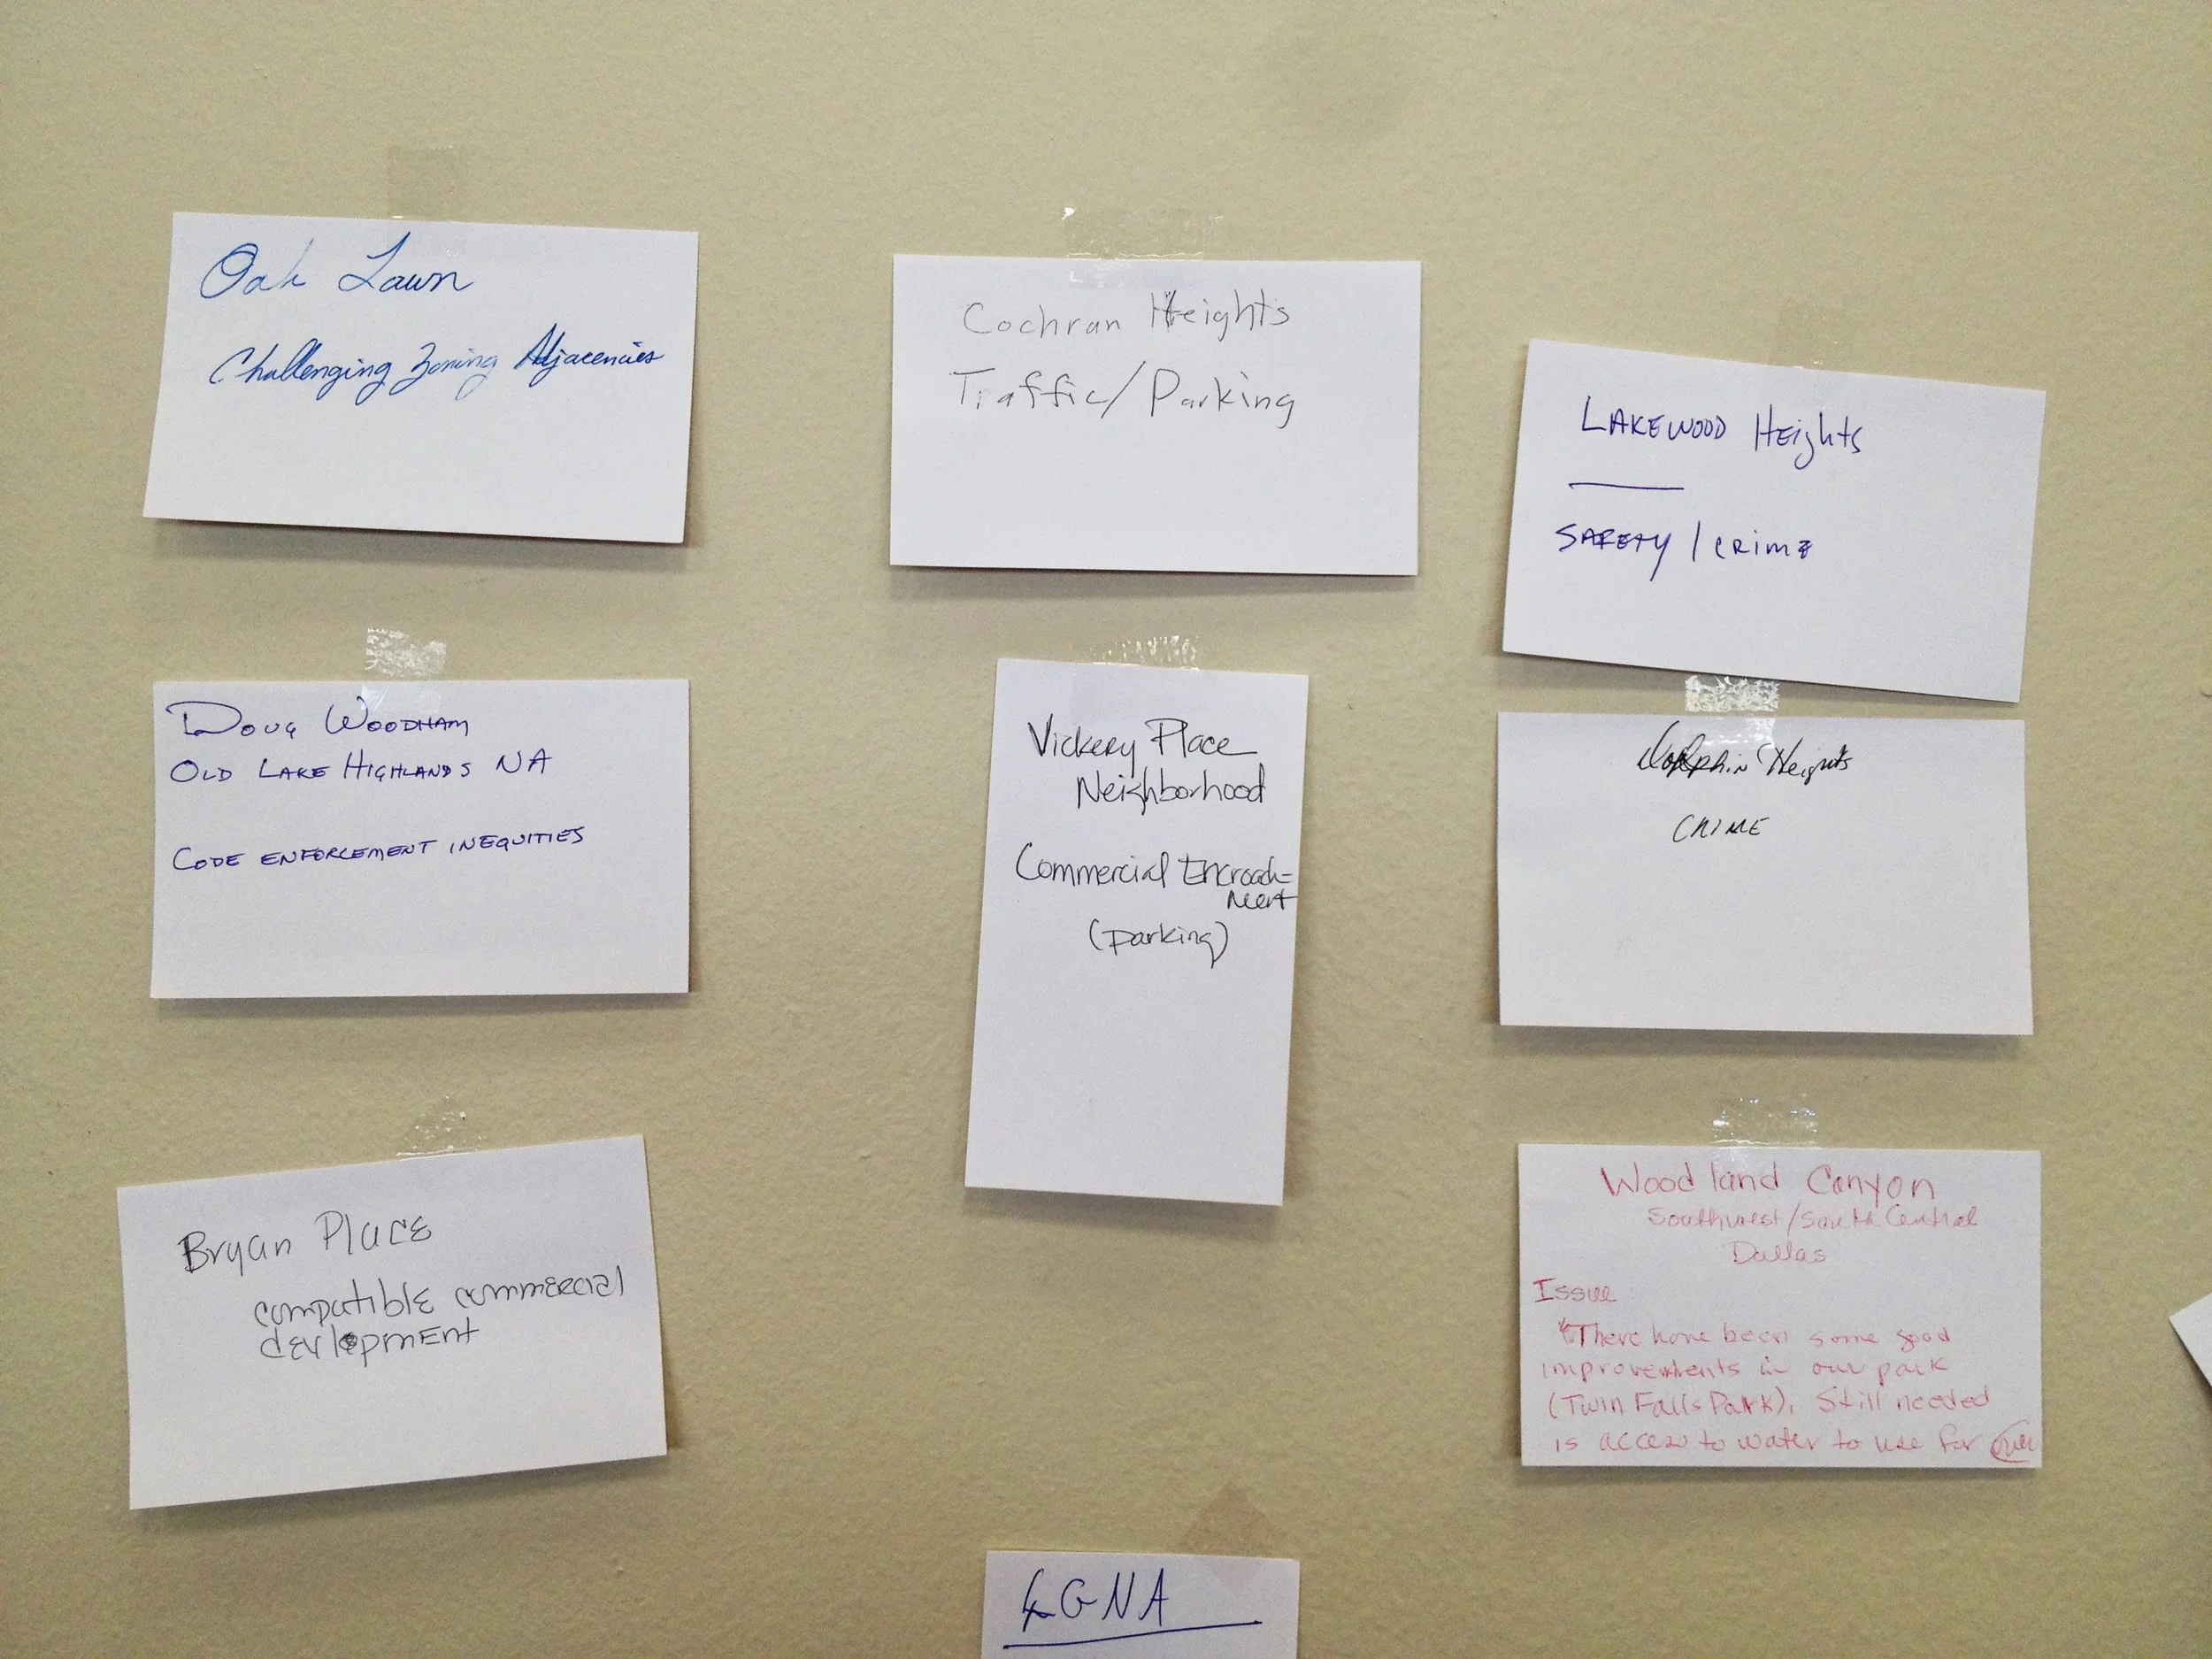 Oak Lawn
Challenging Zoning Adjacencies
Cochran Heights
Traffic/Parking
LAKEWOOD Heights
SAFETY / CRIME
DOUG WOODHAM
OLD LAKE HIGHLANDS NA
CODE ENFORCEMENT INEQUITIES
Vickery Place
Neighborhood
Commercial Encroach=
ment
(parking)
Dolphin Heights
CRIME
Bryan PlacE
compatiblE commErcial
dEvElopmEnt
Woodland Canyon
Southwest/South Central
Dallas
Issue
There have been some good
improvements in our park
(Twin Falls Park). Still needed
is access to water to use for
LGNA